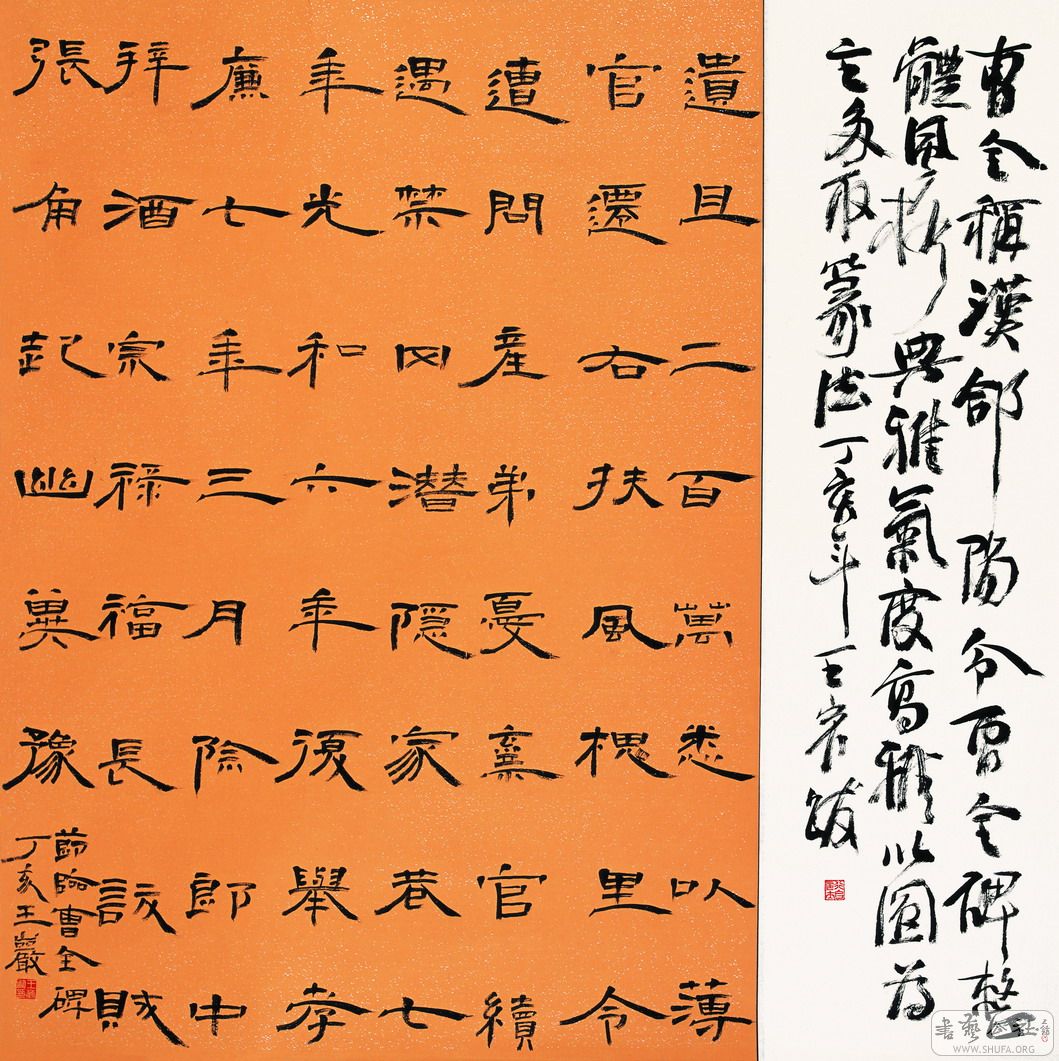 曹全稱漢郃陽令曹全碑整
體風格典雅氣度高雅以圓为
主多取篆法丁亥年王跋
遺且二百萬悉以薄
官還右扶風槐里令
遭同產弟憂棄官續
遇禁冈潛隱家巷七
年光和六年復舉孝
廉七年三月除郎中
拜酒泉祿福長訞賊
張角起幽冀豫
節臨曹全碑
丁亥王巖
書藝公社
WWW.SHUFA.ORG